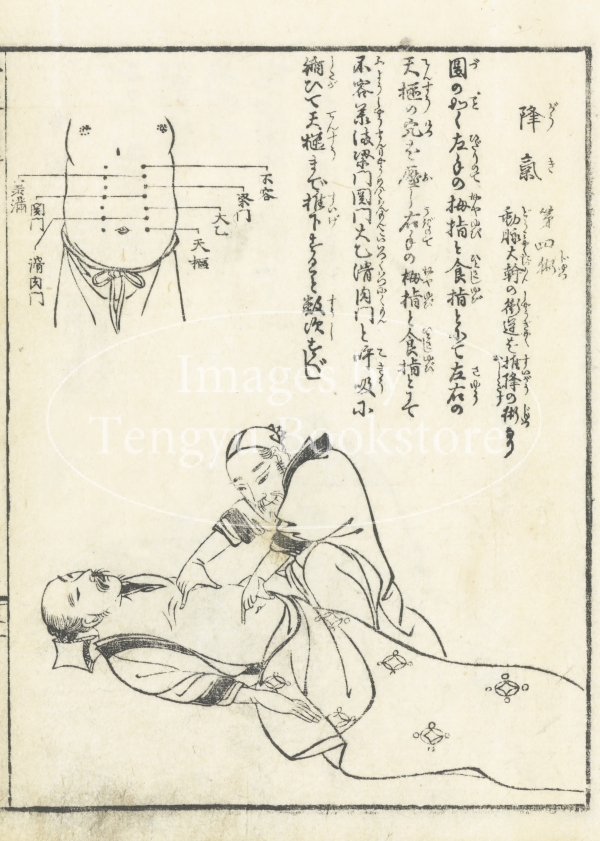 降氣 第四術
動脉大幹の衝逆を推降の術なり
圖の如く左手の拇指と食指とにて左右の
天樞の穴を壓し右手の拇指と食指とにて
不容 承満 梁門 関門 太乙 滑肉門と呼吸に
循ひて天樞まで推下すること数次すべし
不容
梁門
太乙
天樞
承滿
関門
滑肉門
Images by
Tengyu Bookstore